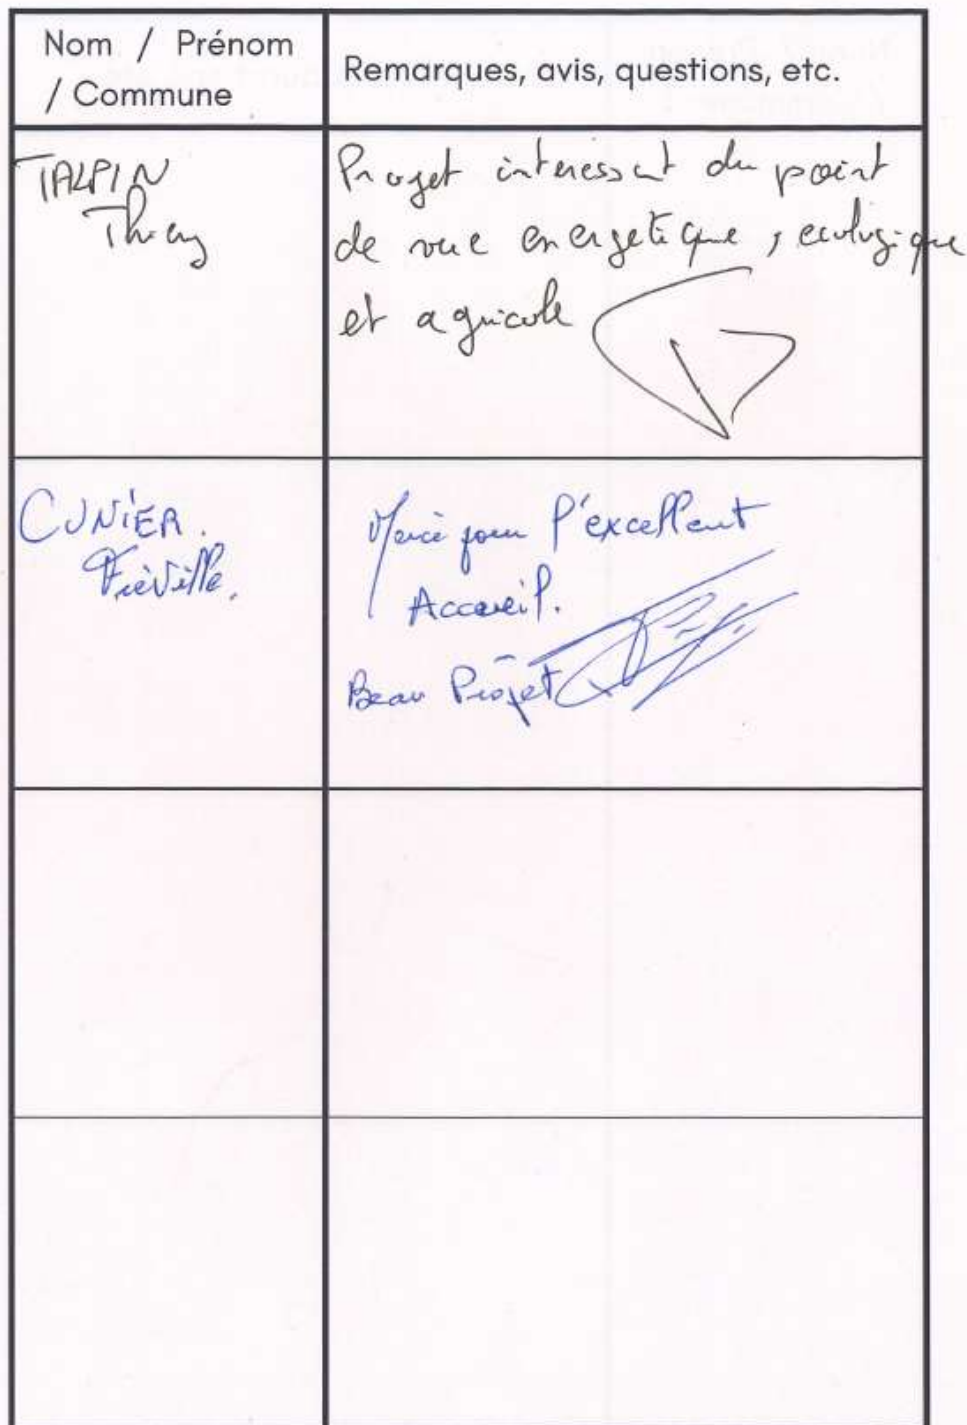 Nom / Prénom
/ Commune
Remarques, avis, questions, etc.
TALPIN
Thierry
Projet interessant du point
de vue energetique, ecologique
et agricole
CUNiER.
Fièville.
Merci pour l'excellent
Accueil.
Beau Projet